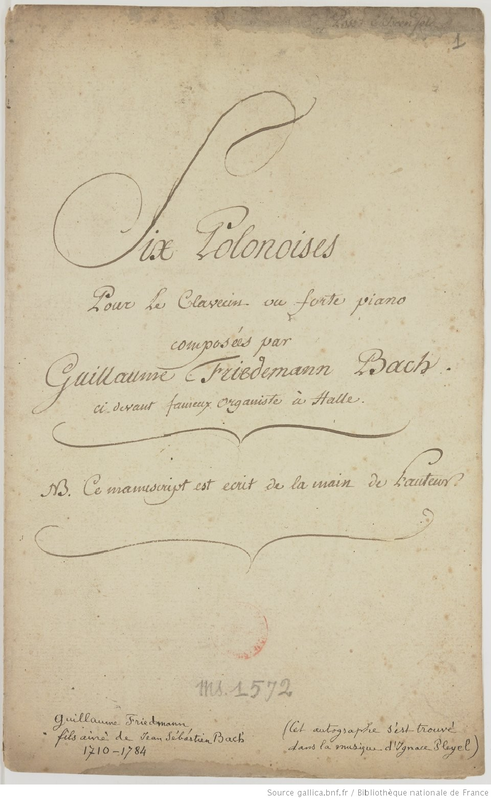 1
Six Polonoises
Pour le Clavecin ou forte piano
composées par
Guillaume Friedemann Bach.
ci-devant fameux organiste à Halle.
NB. Ce manuscript est ecrit de la main de l'auteur.
ms. 1572
Guillaume Friedmann
fils aîné de Jean Sébastien Bach
1710-1784
(Cet autographe s'est trouvé
dans la musique d'Ignace Pleyel)
Source gallica.bnf.fr / Bibliothèque nationale de France